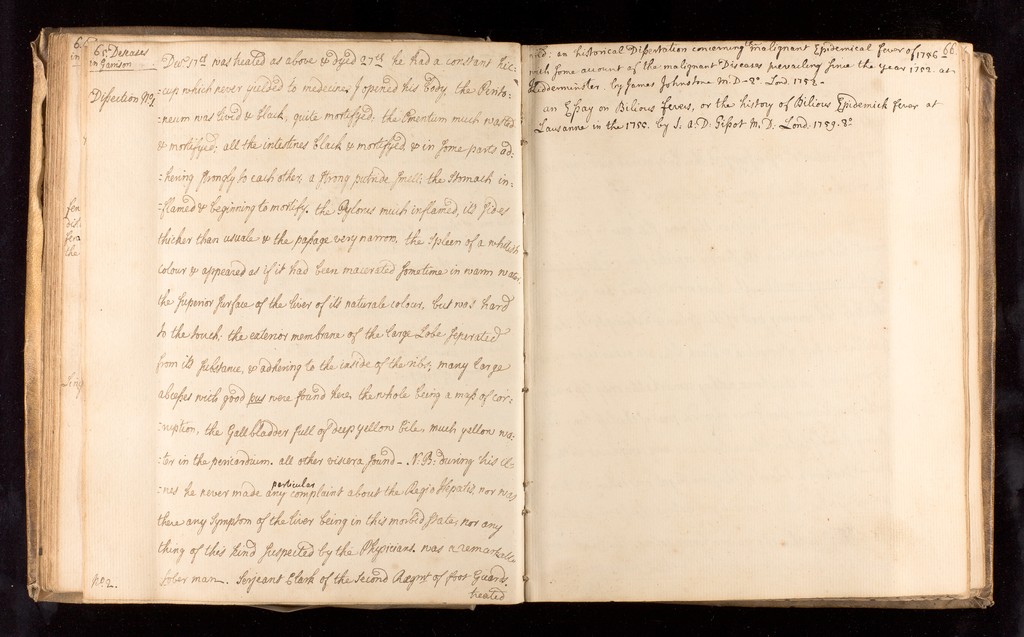 65 Diseases
in Garrison
Dissection No 1
Decr 17th was treated as above & dyed 27th he had a constant hic-
-cup which never yielded to medicine, I opened his Body, the Perito-
:neum was livid & black, quite mortifyed; the Omentum much wasted
& mortifyed; all the intestines black & mortifyed & in some parts ad-
:hering strongly to each other, a strong putride smell; the Stomach in-
:flamed & beginning to mortify. the Pylorus much inflamed, its sides
thicker than usuale & the passage very narrow, the spleen of a whitish
colour & appeared as if it had been macerated sometime in warm water.
the superior surface of the liver of its naturale colour, but was hard
to the touch; the exterior membrane of the large Lobe seperated
from its substance, & adhering to the inside of the ribs; many large
abcesses with good pus were found here, the whole being a mass of cor-
-ruption, the Gall bladder full of deep yellow bile, much yellow wa-
:ter in the pericardium. all other viscera sound - N.B: during his il-
-nes he never made any particular complaint about the Regio Hepatis, nor was
there any symptom of the liver being in this morbid state, nor any
thing of this kind suspected by the Physicians. was a remarkable
sober man. Serjeant Clark of the second Regmt of foot Guards,
No 2.
treated
66
an historical Dissertation concerning the malignant Epidemical fever of 1756
with some account of the malignant Diseases prevailing since the year 1752. at
Kidderminster. by James Johnstone M.D - 8o Lond 1758 -
an Essay on Bilious fevers, or the history of Bilious Epidemick fever at
Lausanne in the 1755. by S. A. D. Tissot M. D. Lond: 1759. 8o